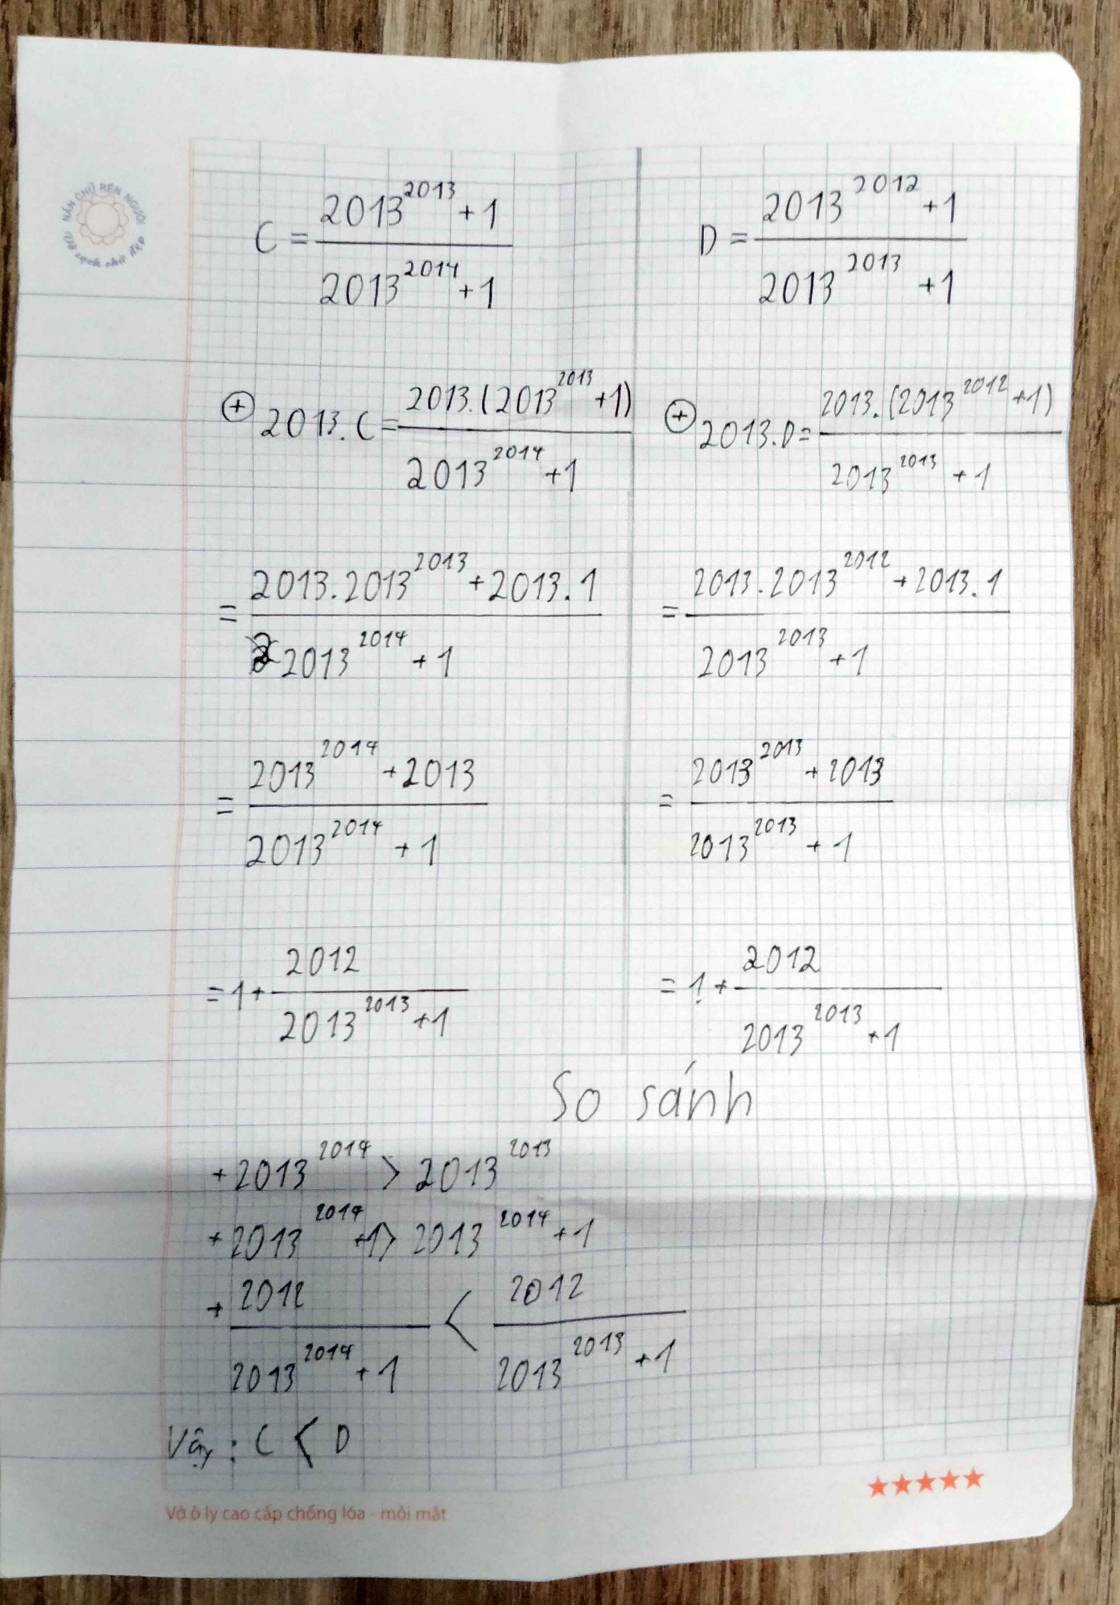 NẮN CHỮ RÈN NGƯỜI
Vở sạch chữ đẹp
C = \frac{2013^{2013}+1}{2013^{2014}+1}
D = \frac{2013^{2012}+1}{2013^{2013}+1}
⊕ 2013.C = \frac{2013.(2013^{2013}+1)}{2013^{2014}+1}
⊕ 2013.D = \frac{2013.(2013^{2012}+1)}{2013^{2013}+1}
= \frac{2013.2013^{2013}+2013.1}{2013^{2014}+1}
= \frac{2013.2013^{2012}+2013.1}{2013^{2013}+1}
= \frac{2013^{2014}+2013}{2013^{2014}+1}
= \frac{2013^{2013}+2013}{2013^{2013}+1}
= 1+\frac{2012}{2013^{2013}+1}
= 1+\frac{2012}{2013^{2013}+1}
So sánh
+ 2013^{2014} > 2013^{2013}
+ 2013^{2014}+1 > 2013^{2014}+1
+ \frac{2012}{2013^{2014}+1} < \frac{2012}{2013^{2013}+1}
Vậy : C < D
Vở ô ly cao cấp chống lóa - mỏi mắt